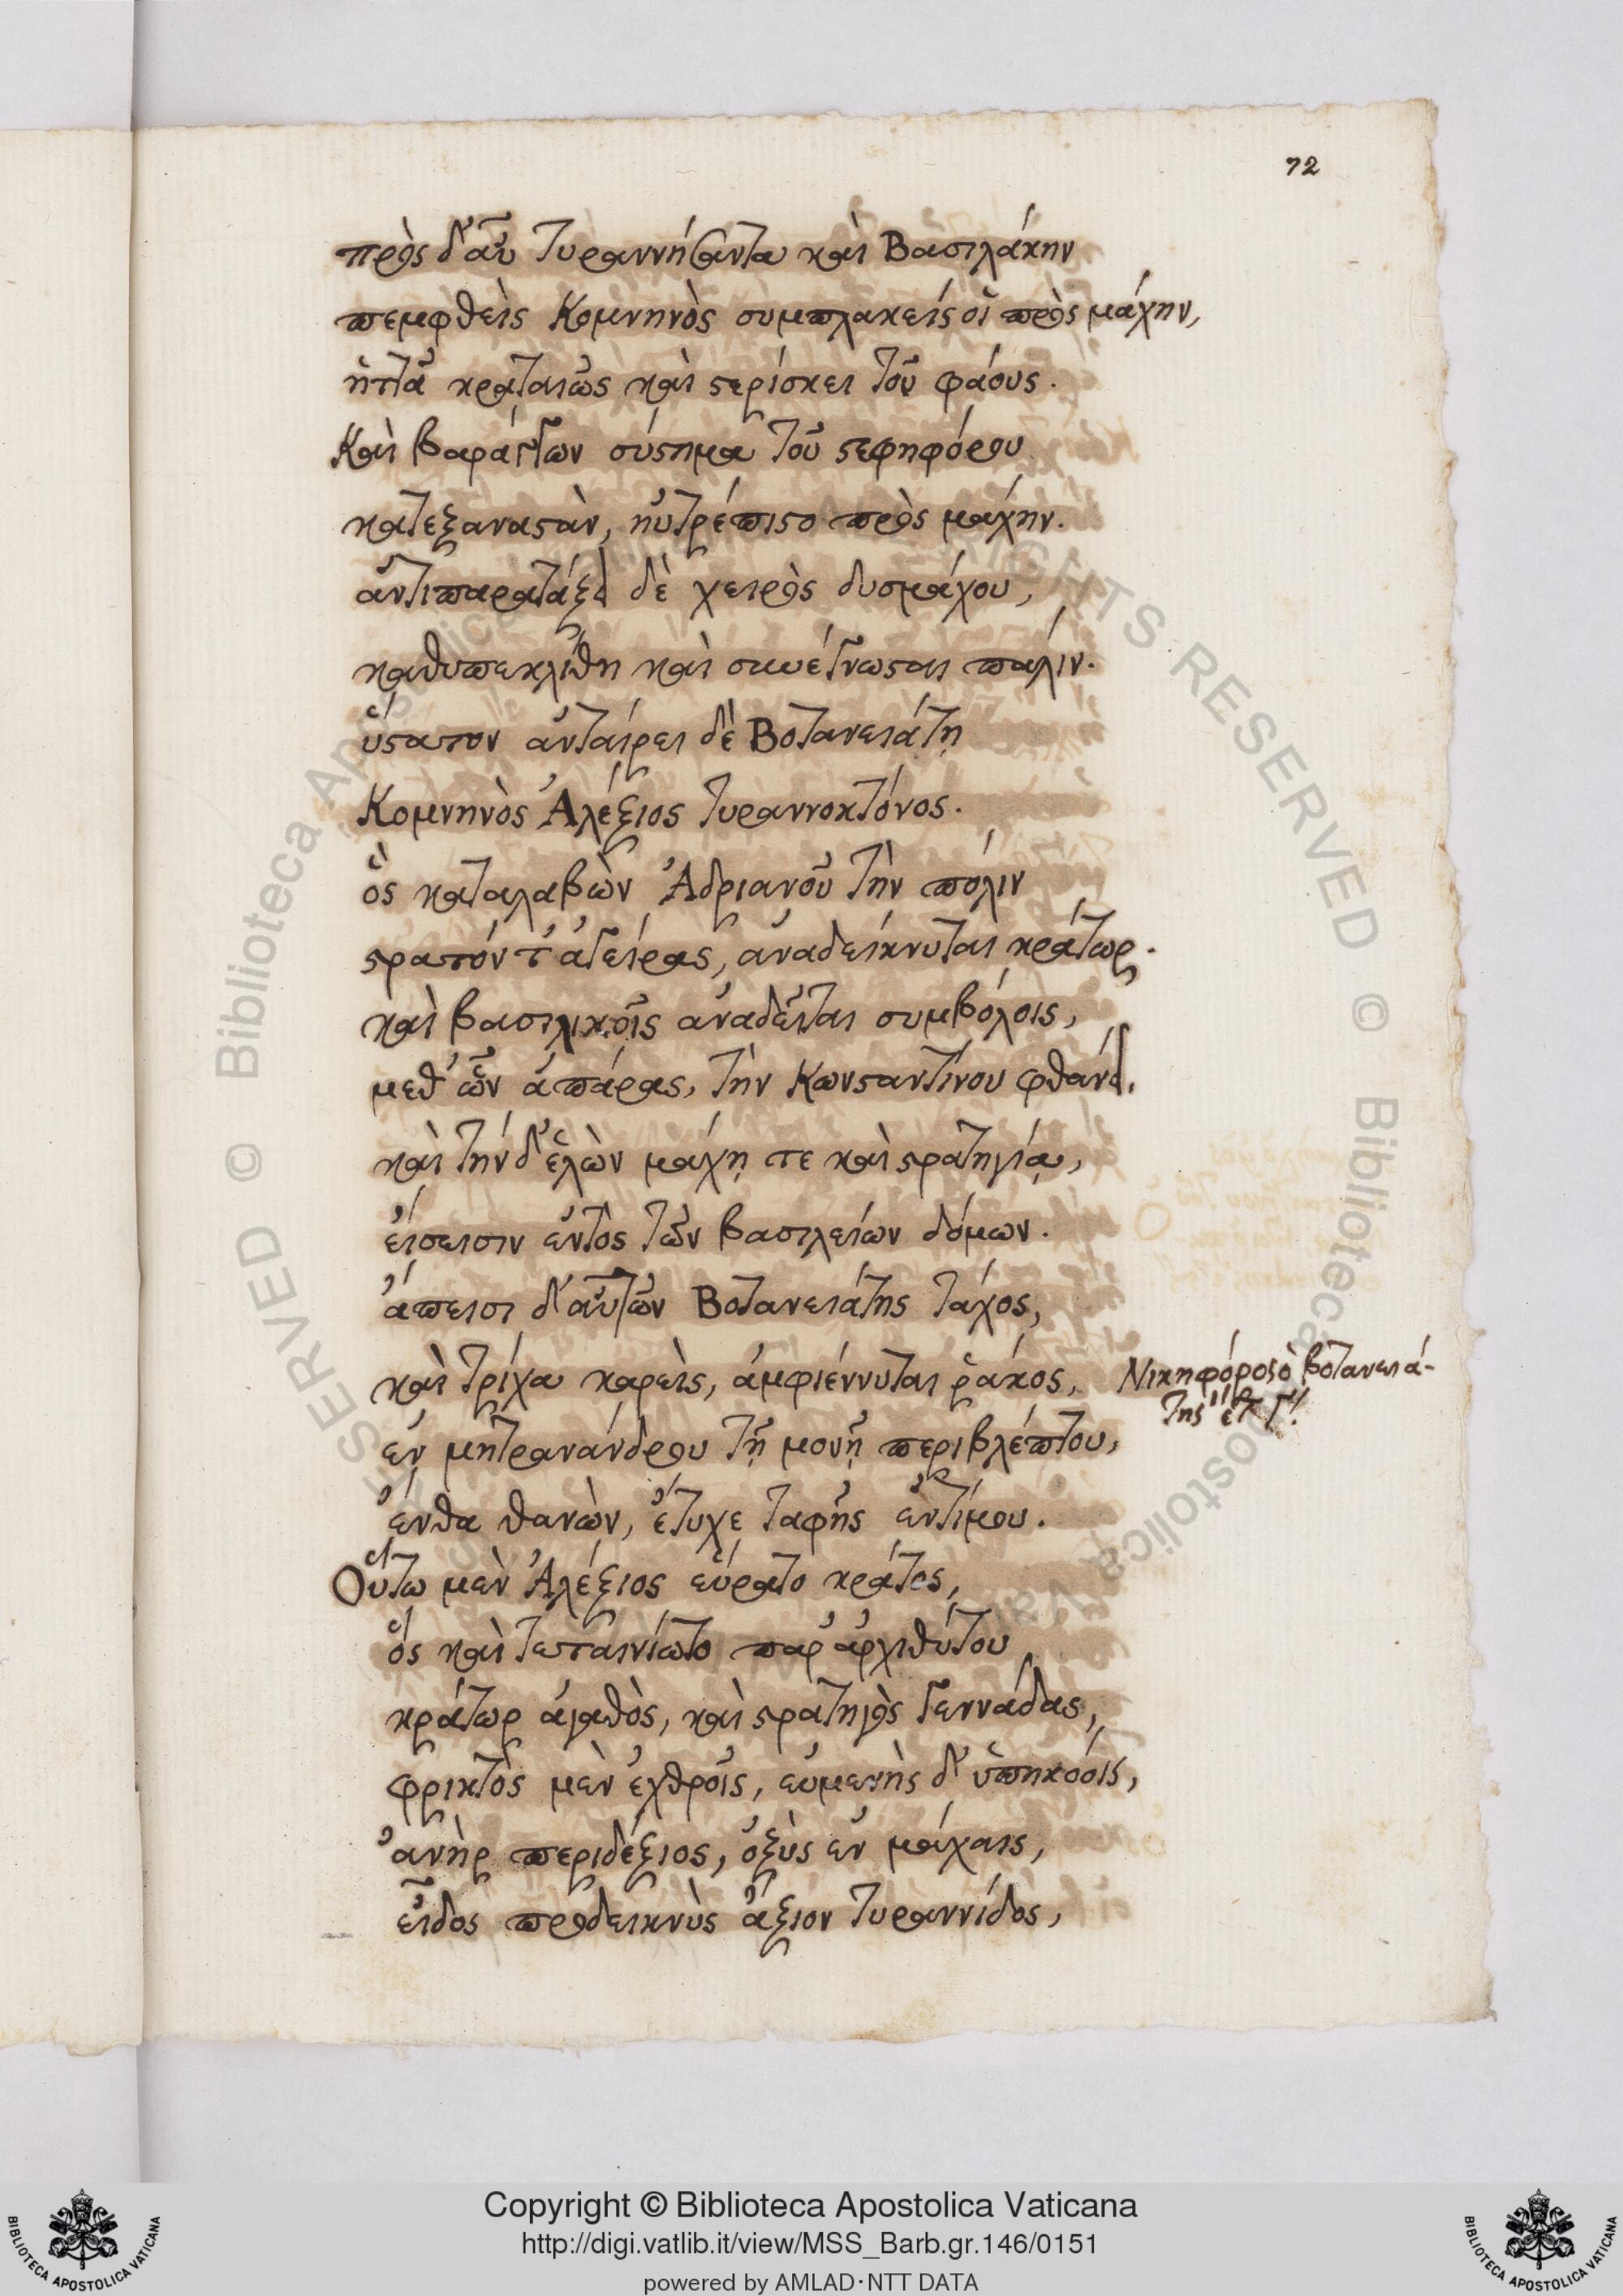 72
πρὸς δ' αὖ τυραννήσαντα καὶ Βασιλάκην
πεμφθεὶς Κομνηνὸς συμπλακείς οἱ πρὸς μάχην,
ἡττᾷ κραταιῶς καὶ στερίσκει τοῦ φάους.
Καὶ βαράγγων σύστημα τοῦ στεφηφόρου
κατεξαναστὰν, ηὐτρέπιστο πρὸς μάχην.
ἀντιπαρατάξει δὲ χειρὸς δυσμάχου,
καθυπεκλίθη καὶ συνέγνωσται πάλιν.
ὕστατον ἀνταίρει δὲ Βοτανειάτῃ
Κομνηνὸς Ἀλέξιος τυραννοκτόνος.
ὃς καταλαβὼν Ἀδριανοῦ τὴν πόλιν
στρατόν τ' ἀγείρας, ἀναδείκνυται κράτωρ.
καὶ βασιλικοῖς ἀναδεῖται συμβόλοις,
μεθ' ὧν ἀπάρας, τὴν Κωνσταντίνου φθάνει.
καὶ τήνδ' ἑλὼν μάχῃ τε καὶ στρατηγίᾳ,
εἴσεισιν ἐντὸς τῶν βασιλείων δόμων.
ἄπεισι δ' αὐτῶν Βοτανειάτης τάχος,
καὶ τρίχα καρεὶς, ἀμφιέννυται ῥάκος,
Νικηφόρος ὁ βοτανειά-
της ἔτ γ'
ἐν μητρανάνδρου τῇ μονῇ περιβλέπτου,
ἔνθα θανὼν, ἔτυχε ταφῆς ἐντίμου.
Οὕτω μὲν Ἀλέξιος εὕρατο κράτος,
ὃς καὶ τεταινίωτο παρ' ἀρχιθύτου
κράτωρ ἀγαθὸς, καὶ στρατηγὸς γεννάδας,
φρικτὸς μὲν ἐχθροῖς, εὐμενὴς δ' ὑπηκόοις,
ἀνὴρ περιδέξιος, ὀξὺς ἐν μάχαις,
εἶδος προδεικνὺς ἄξιον τυραννίδος,
Copyright © Biblioteca Apostolica Vaticana
http://digi.vatlib.it/view/MSS_Barb.gr.146/0151
powered by AMLAD·NTT DATA